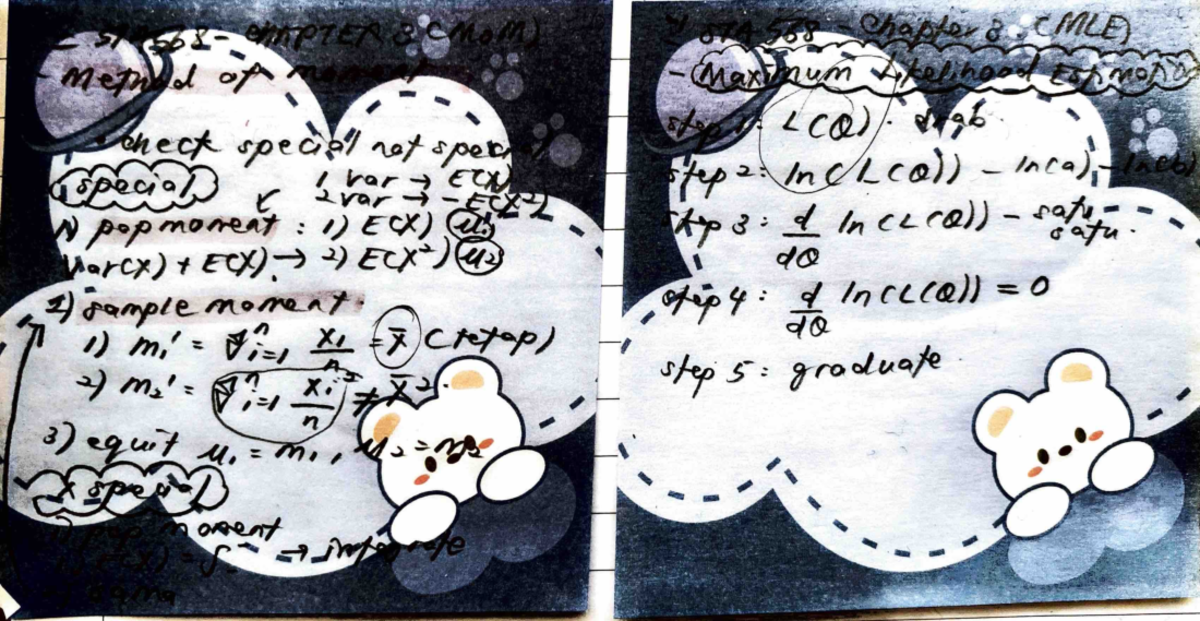 STA568 - CHAPTER 3 (MoM)
- Method of moment
check special not special
special
1 var → E(X)
2 var → - E(X²)
1) pop moment : 1) E(X) μ₁
Var(X) + E(X) → 2) E(X²) μ₂
2) sample moment
1) m₁' = ∑ⁿᵢ₌₁ xᵢ/n = x̄ (tetap)
2) m₂' = ∑ⁿᵢ₌₁ xᵢ²/n ≠ x̄²
3) equit μ₁ = m₁, μ₂ = m₂
x special
1) pop moment
1) E(X) = ∫ → integrate
2) sama
STA 568 - Chapter 3 (MLE)
- Maximum Likelihood Estimator
step 1: L(θ)
step 2: ln(L(θ)) - ln(a) - ln(b)
step 3: d/dθ ln(L(θ)) - satu satu.
step 4: d/dθ ln(L(θ)) = 0
step 5: graduate